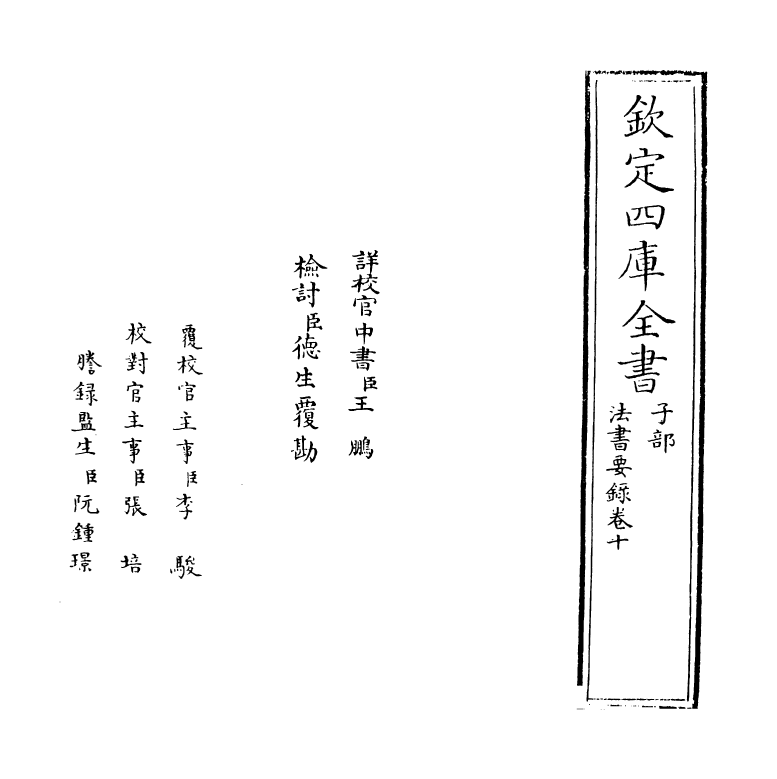 欽定四庫全書
子部
法書要錄卷十
詳校官中書臣王鵬
檢討臣德生覆勘
覆校官主事臣李駿
校對官主事臣張培
謄錄監生臣阮鍾璟